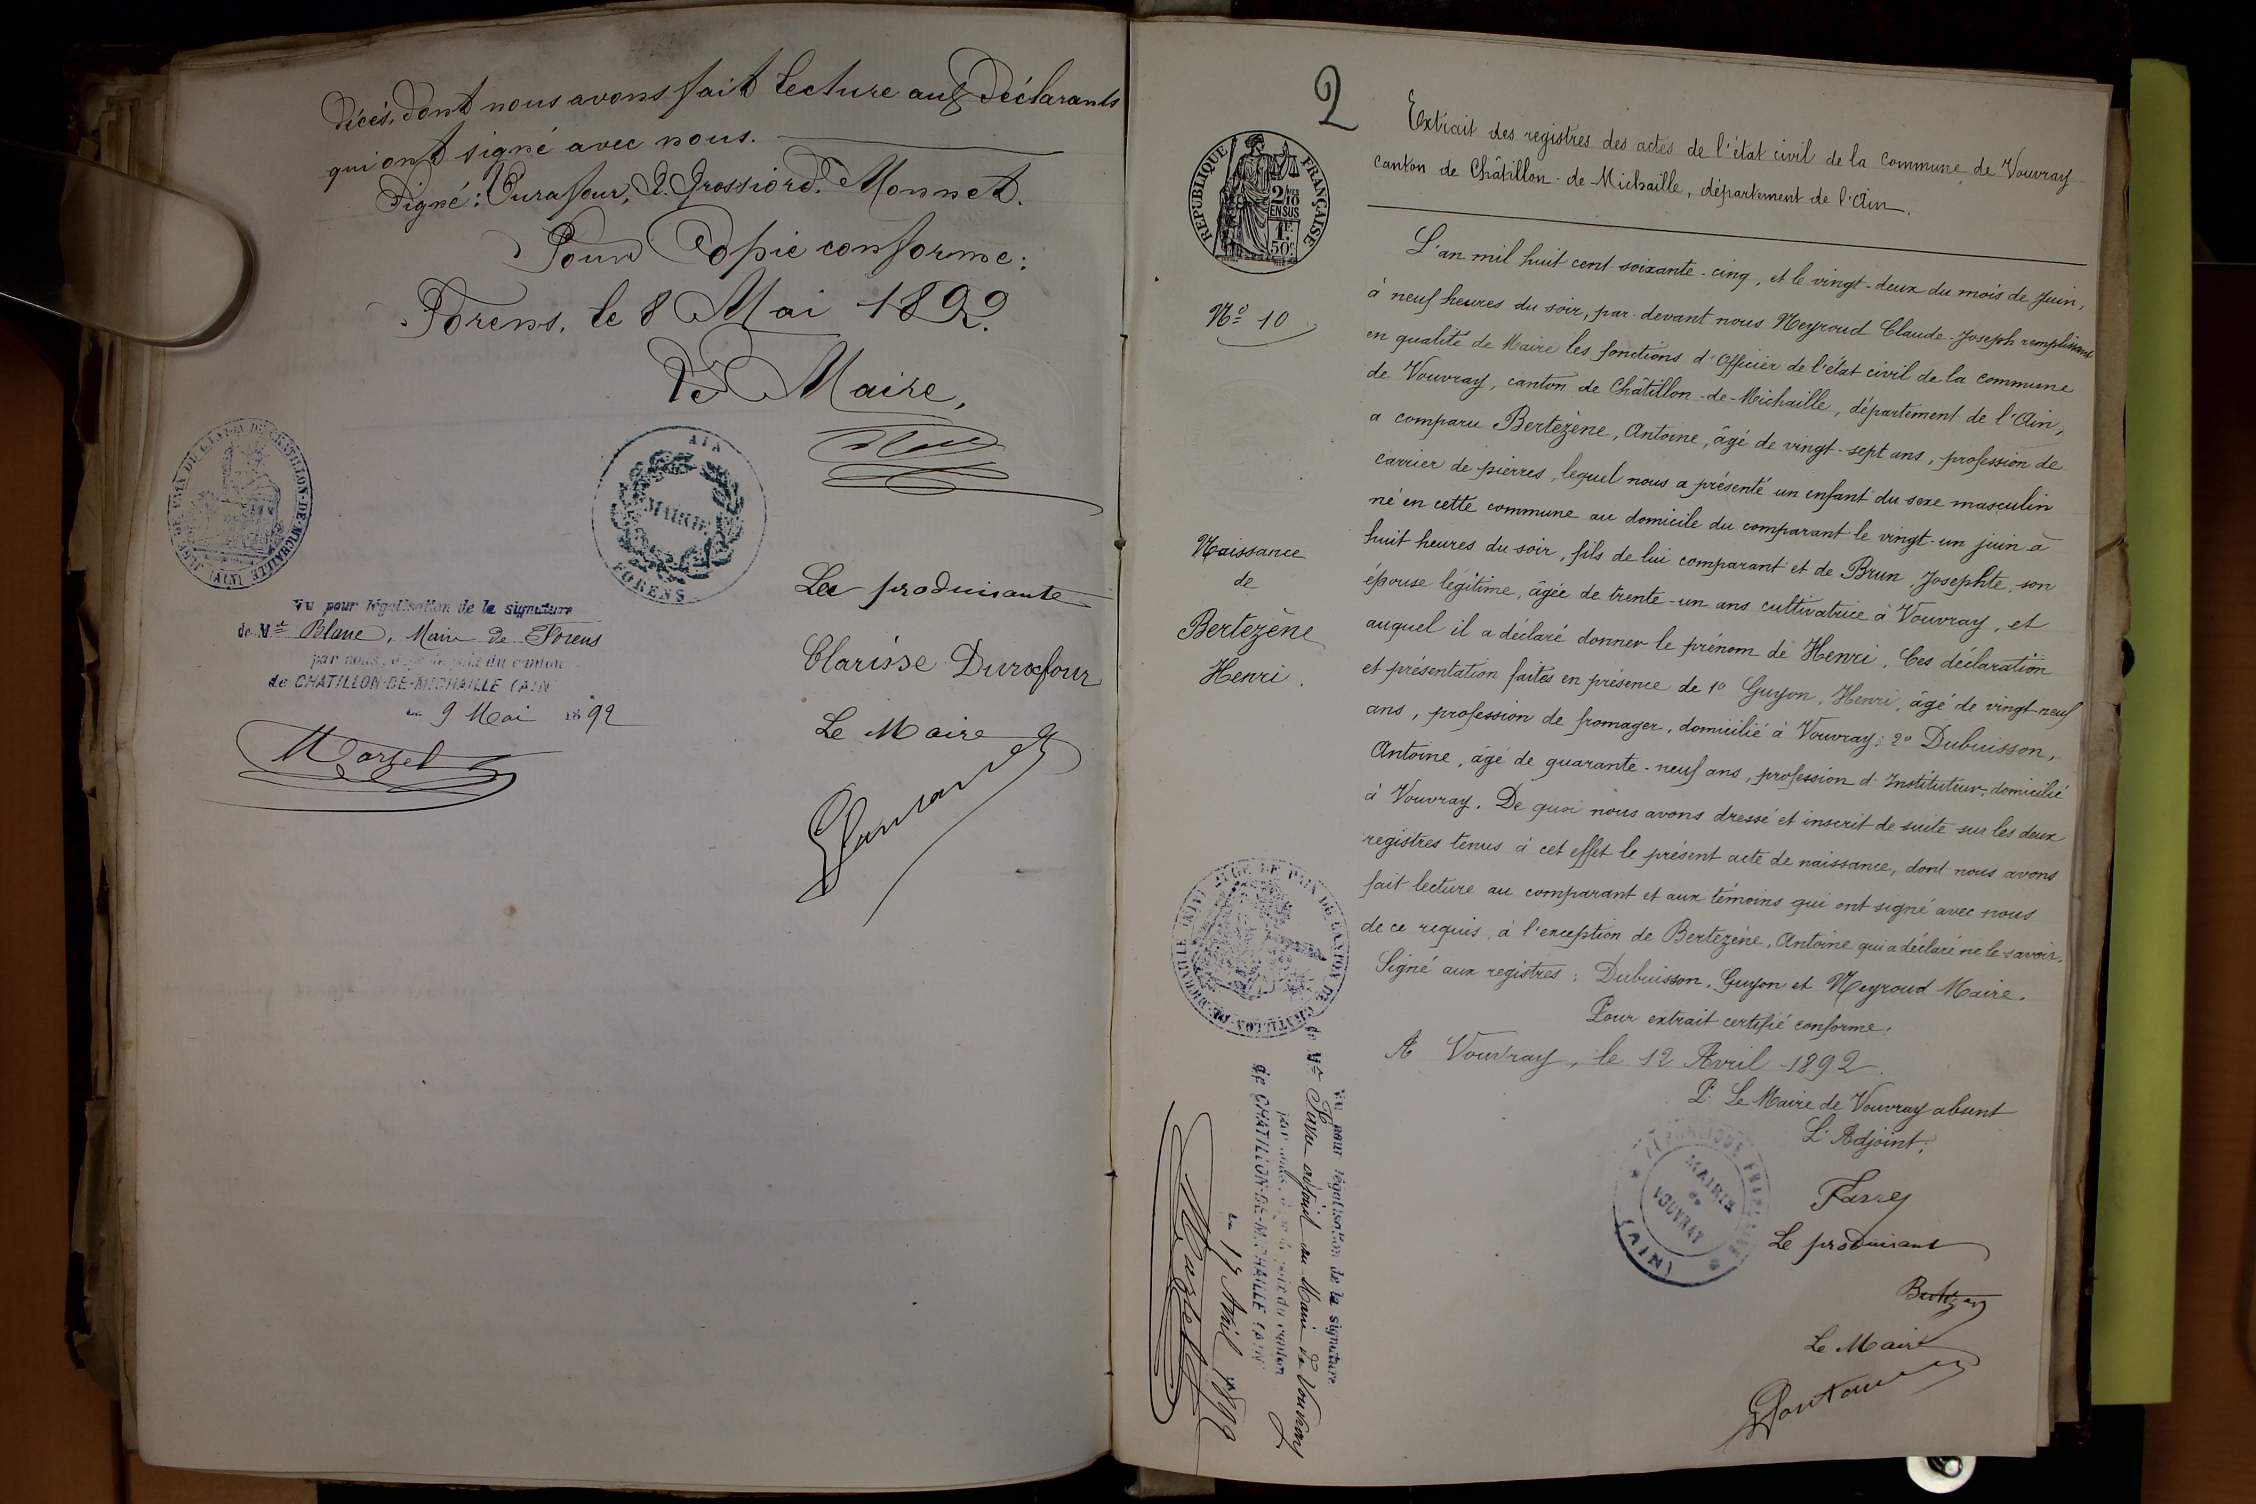 décès, dont nous avons fait lecture aux déclarants
qui ont signé avec nous.
Signé: Durafour, Grossiord, Monnet.
Pour Copie conforme:
Forens, le 8 Mai 1892.
Le Maire,
JUGE DE PAIX DU CANTON DE CHATILLON-DE-MICHAILLE (AIN)
AIN
MAIRIE
FORENS
Vu pour légalisation de la signature
de Mr Blanc, Maire de Forens
par nous, Juge de paix du canton
de CHATILLON-DE-MICHAILLE (AIN)
le 9 Mai 1892
Marzel
La produisante
Clarisse Durafour
Le Maire
2
RÉPUBLIQUE FRANÇAISE
2/10 EN SUS
1F 50c
Extrait des registres des actes de l'état civil de la commune de Vouvray
canton de Châtillon-de-Michaille, département de l'Ain.
No 10
Naissance
de
Bertezène
Henri.
L'an mil huit cent soixante-cinq, et le vingt-deux du mois de Juin,
à neuf heures du soir, par devant nous Neyroud Claude-Joseph remplissant
en qualité de Maire les fonctions d'Officier de l'état civil de la commune
de Vouvray, canton de Châtillon-de-Michaille, département de l'Ain,
a comparu Bertezène, Antoine, âgé de vingt-sept ans, profession de
carrier de pierres, lequel nous a présenté un enfant du sexe masculin
né en cette commune au domicile du comparant le vingt-un juin à
huit heures du soir, fils de lui comparant et de Brun, Josephte, son
épouse légitime, âgée de trente-un ans cultivatrice à Vouvray, et
auquel il a déclaré donner le prénom de Henri. Ces déclaration
et présentation faites en présence de 1o Guyon, Henri, âgé de vingt-neuf
ans, profession de fromager, domicilié à Vouvray; 2o Dubuisson,
Antoine, âgé de quarante-neuf ans, profession d'Instituteur, domicilié
à Vouvray. De quoi nous avons dressé et inscrit de suite sur les deux
registres tenus à cet effet le présent acte de naissance, dont nous avons
fait lecture au comparant et aux témoins qui ont signé avec nous
de ce requis, à l'exception de Bertezène, Antoine qui a déclaré ne le savoir.
Signé aux registres: Dubuisson, Guyon et Neyroud Maire.
Pour extrait certifié conforme.
A Vouvray, le 12 Avril 1892.
P. Le Maire de Vouvray absent
L'Adjoint,
RÉPUBLIQUE FRANÇAISE
MAIRIE
de
VOUVRAY
(AIN)
Le produisant
Le Maire
JUGE DE PAIX DU CANTON DE CHATILLON-DE-MICHAILLE (AIN)
Vu pour légalisation de la signature
de Mr Favre adjoint au Maire de Vouvray
par nous, Juge de paix du canton
de CHATILLON-DE-MICHAILLE (AIN)
le 17 Avril 1892
Marzel